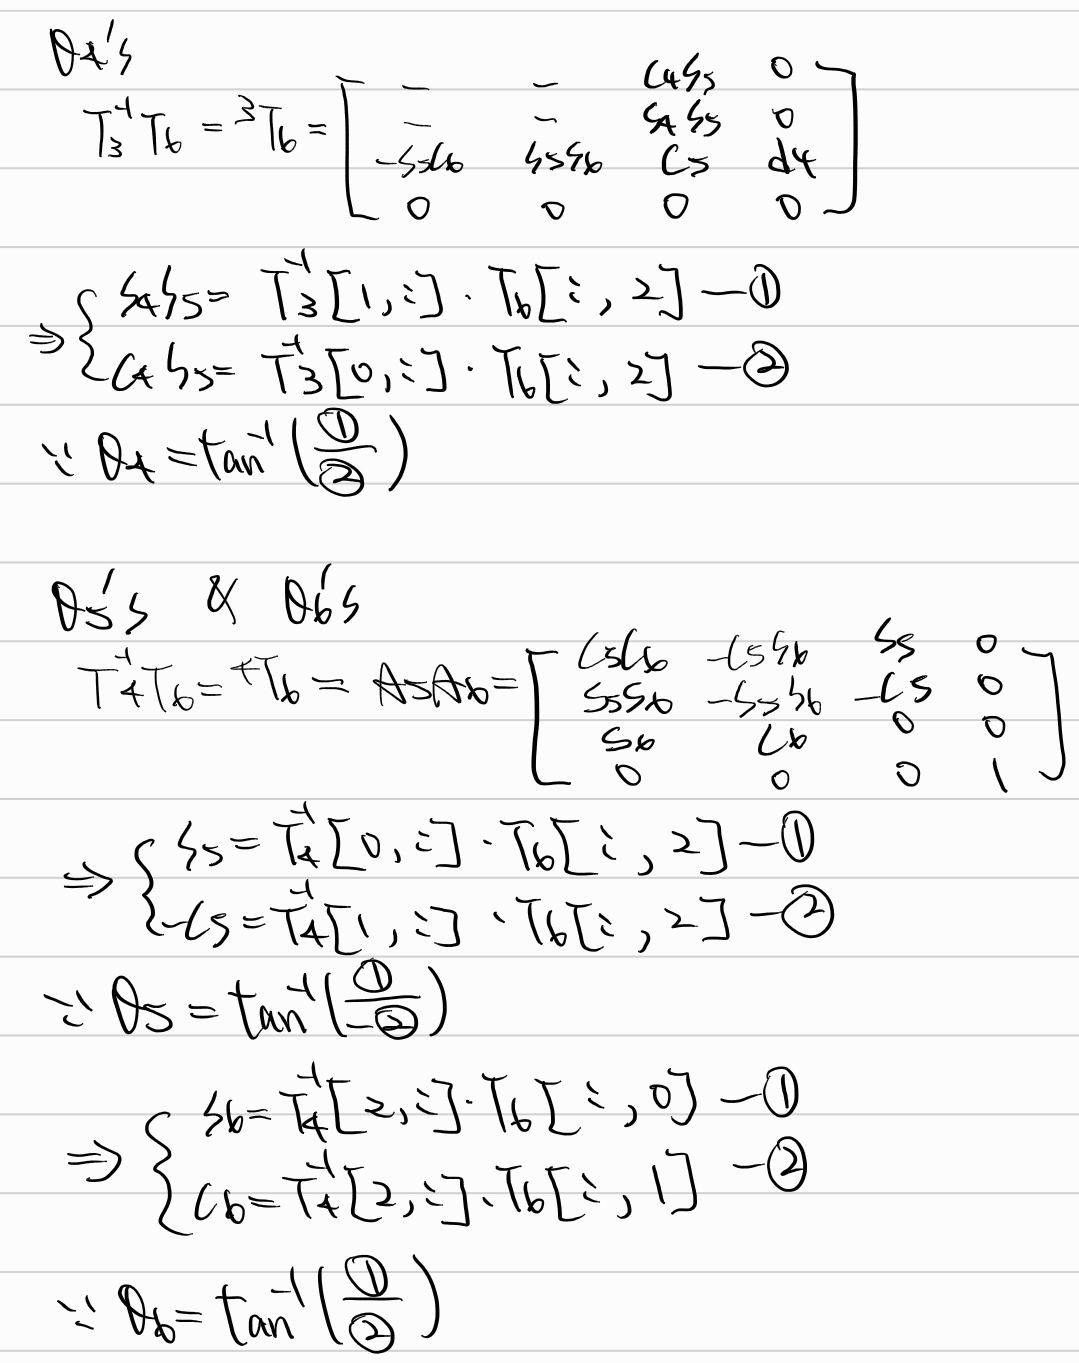 θ4's
T3^-1 T6 = ^3T6 = [ - - C4S5 0
- - S4S5 0
-S5C6 S5S6 C5 d4
0 0 0 0 ]
⇒ { S4S5 = T3^-1[1, :] · T6[:, 2] — ①
C4S5 = T3^-1[0, :] · T6[:, 2] — ②
∵ θ4 = tan^-1(①/②)
θ5's & θ6's
T4^-1 T6 = ^4T6 = A5A6 = [ C5C6 -C5S6 S5 0
S5S6 -S5S6 -C5 0
S6 C6 0 0
0 0 0 1 ]
⇒ { S5 = T4^-1[0, :] · T6[:, 2] — ①
-C5 = T4^-1[1, :] · T6[:, 2] — ②
∵ θ5 = tan^-1(①/-②)
⇒ { S6 = T4^-1[2, :] · T6[:, 0] — ①
C6 = T4^-1[2, :] · T6[:, 1] — ②
∵ θ6 = tan^-1(①/②)